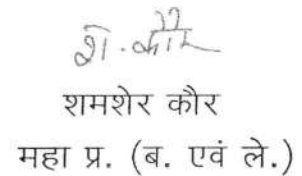 शे. कौर
शमशेर कौर
महा प्र. (ब. एवं ले.)